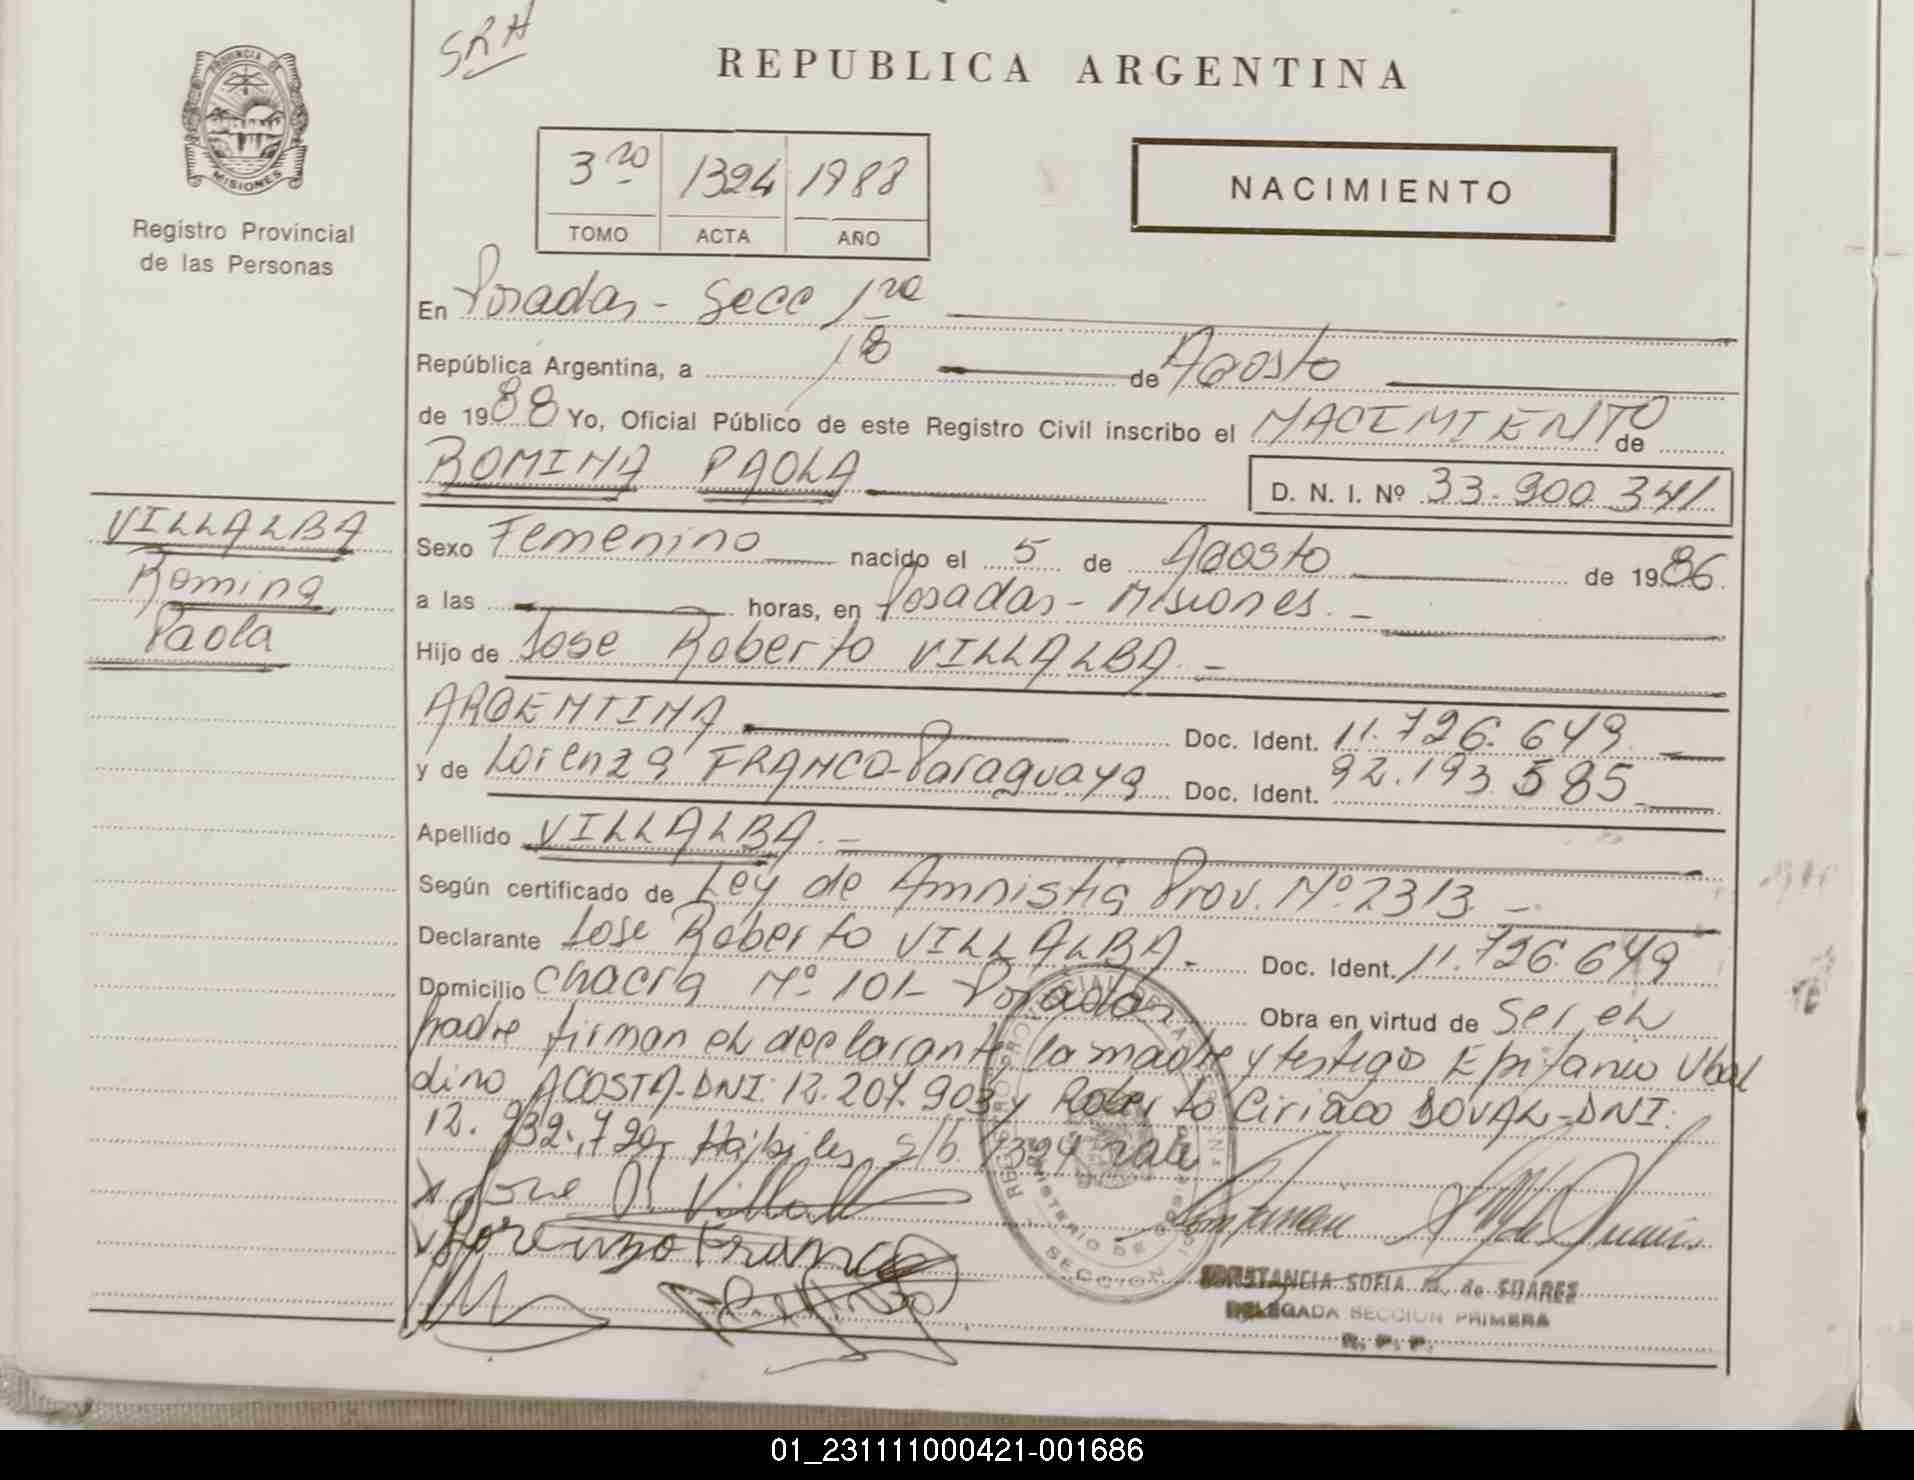 SRH
REPUBLICA ARGENTINA
PROVINCIA DE
MISIONES
Registro Provincial
de las Personas
3ro 1324 1988
TOMO ACTA AÑO
NACIMIENTO
En Posadas - Secc 1ra
República Argentina, a 18 de Agosto
de 1988 Yo, Oficial Público de este Registro Civil inscribo el NACIMIENTO de
ROMINA PAOLA D. N. I. Nº 33.900.341
VILLALBA
Romina
Paola
Sexo Femenino nacido el 5 de Agosto de 1986.
a las horas, en Posadas - Misiones. -
Hijo de Jose Roberto VILLALBA. -
ARGENTINA Doc. Ident. 11.726.649. -
y de Lorenza FRANCO-Paraguaya Doc. Ident. 92.193.585. -
Apellido VILLALBA. -
Según certificado de Ley de Amnistia Prov. Nº 2313. -
Declarante Jose Roberto VILLALBA. - Doc. Ident. 11.726.649
Domicilio Chacra Nº 101- Posadas Obra en virtud de Ser el
padre firman el declarante, la madre y testigos Epifanio Ubal
dino ACOSTA-DNI: 12.207.903 y Roberto Ciriaco DOVAL-DNI:
12.932.720- Hábiles s/b 1324 vale
x Jose R. Villalba
x Lorenza Franco
REGISTRO PROVINCIAL DE LAS PERSONAS
MINISTERIO DE GOBIERNO
SECCION
CONSTANCIA SOFIA M. de SUARES
DELEGADA SECCION PRIMERA
R. P. P.
01_231111000421-001686